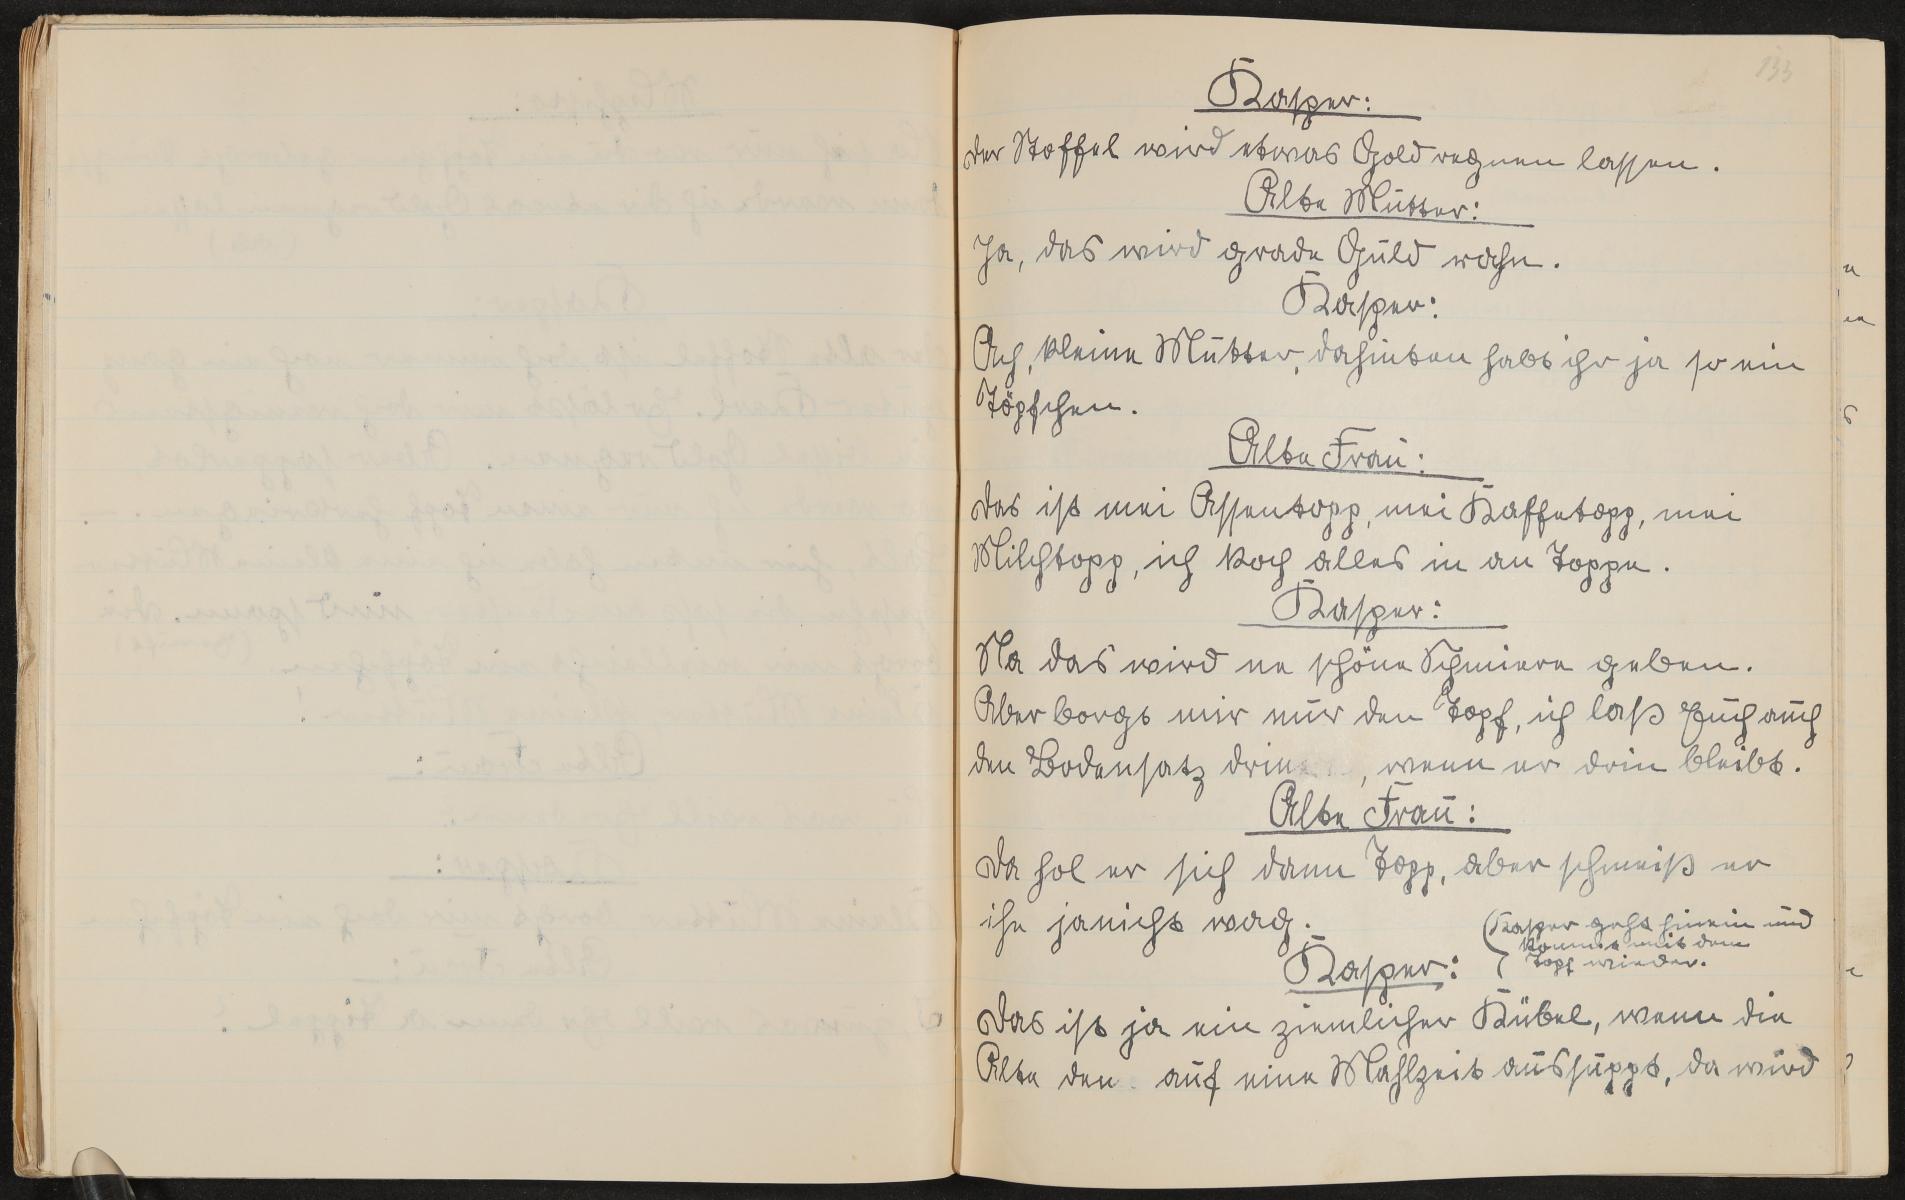 133
Kasper:
Der Stoffel wird etwas Gold regnen lassen.
Alte Mutter:
Ja, das wird grade Guld rahn.
Kasper:
Ach, kleine Mutter, dahinten habt ihr ja so ein
Töpfchen.
Alte Frau:
Das ist mei Assentopp, mei Kaffetopp, mei
Milchtopp, ich koch alles in an Toppe.
Kasper:
Na das wird ne schöne Schmiere geben.
Aber borgt mir nur den Topf, ich laß Euch auch
den Bodensatz drin, wenn er drin bleibt.
Alte Frau:
Da hol er sich dann Topp, aber schmeiß er
ihn ja nicht wag.
(Kasper geht hinein und
kommt mit dem
Topf wieder.
Kasper:
Das ist ja ein ziemlicher Kübel, wenn die
Alte den auf eine Mahlzeit aussuppt, da wird